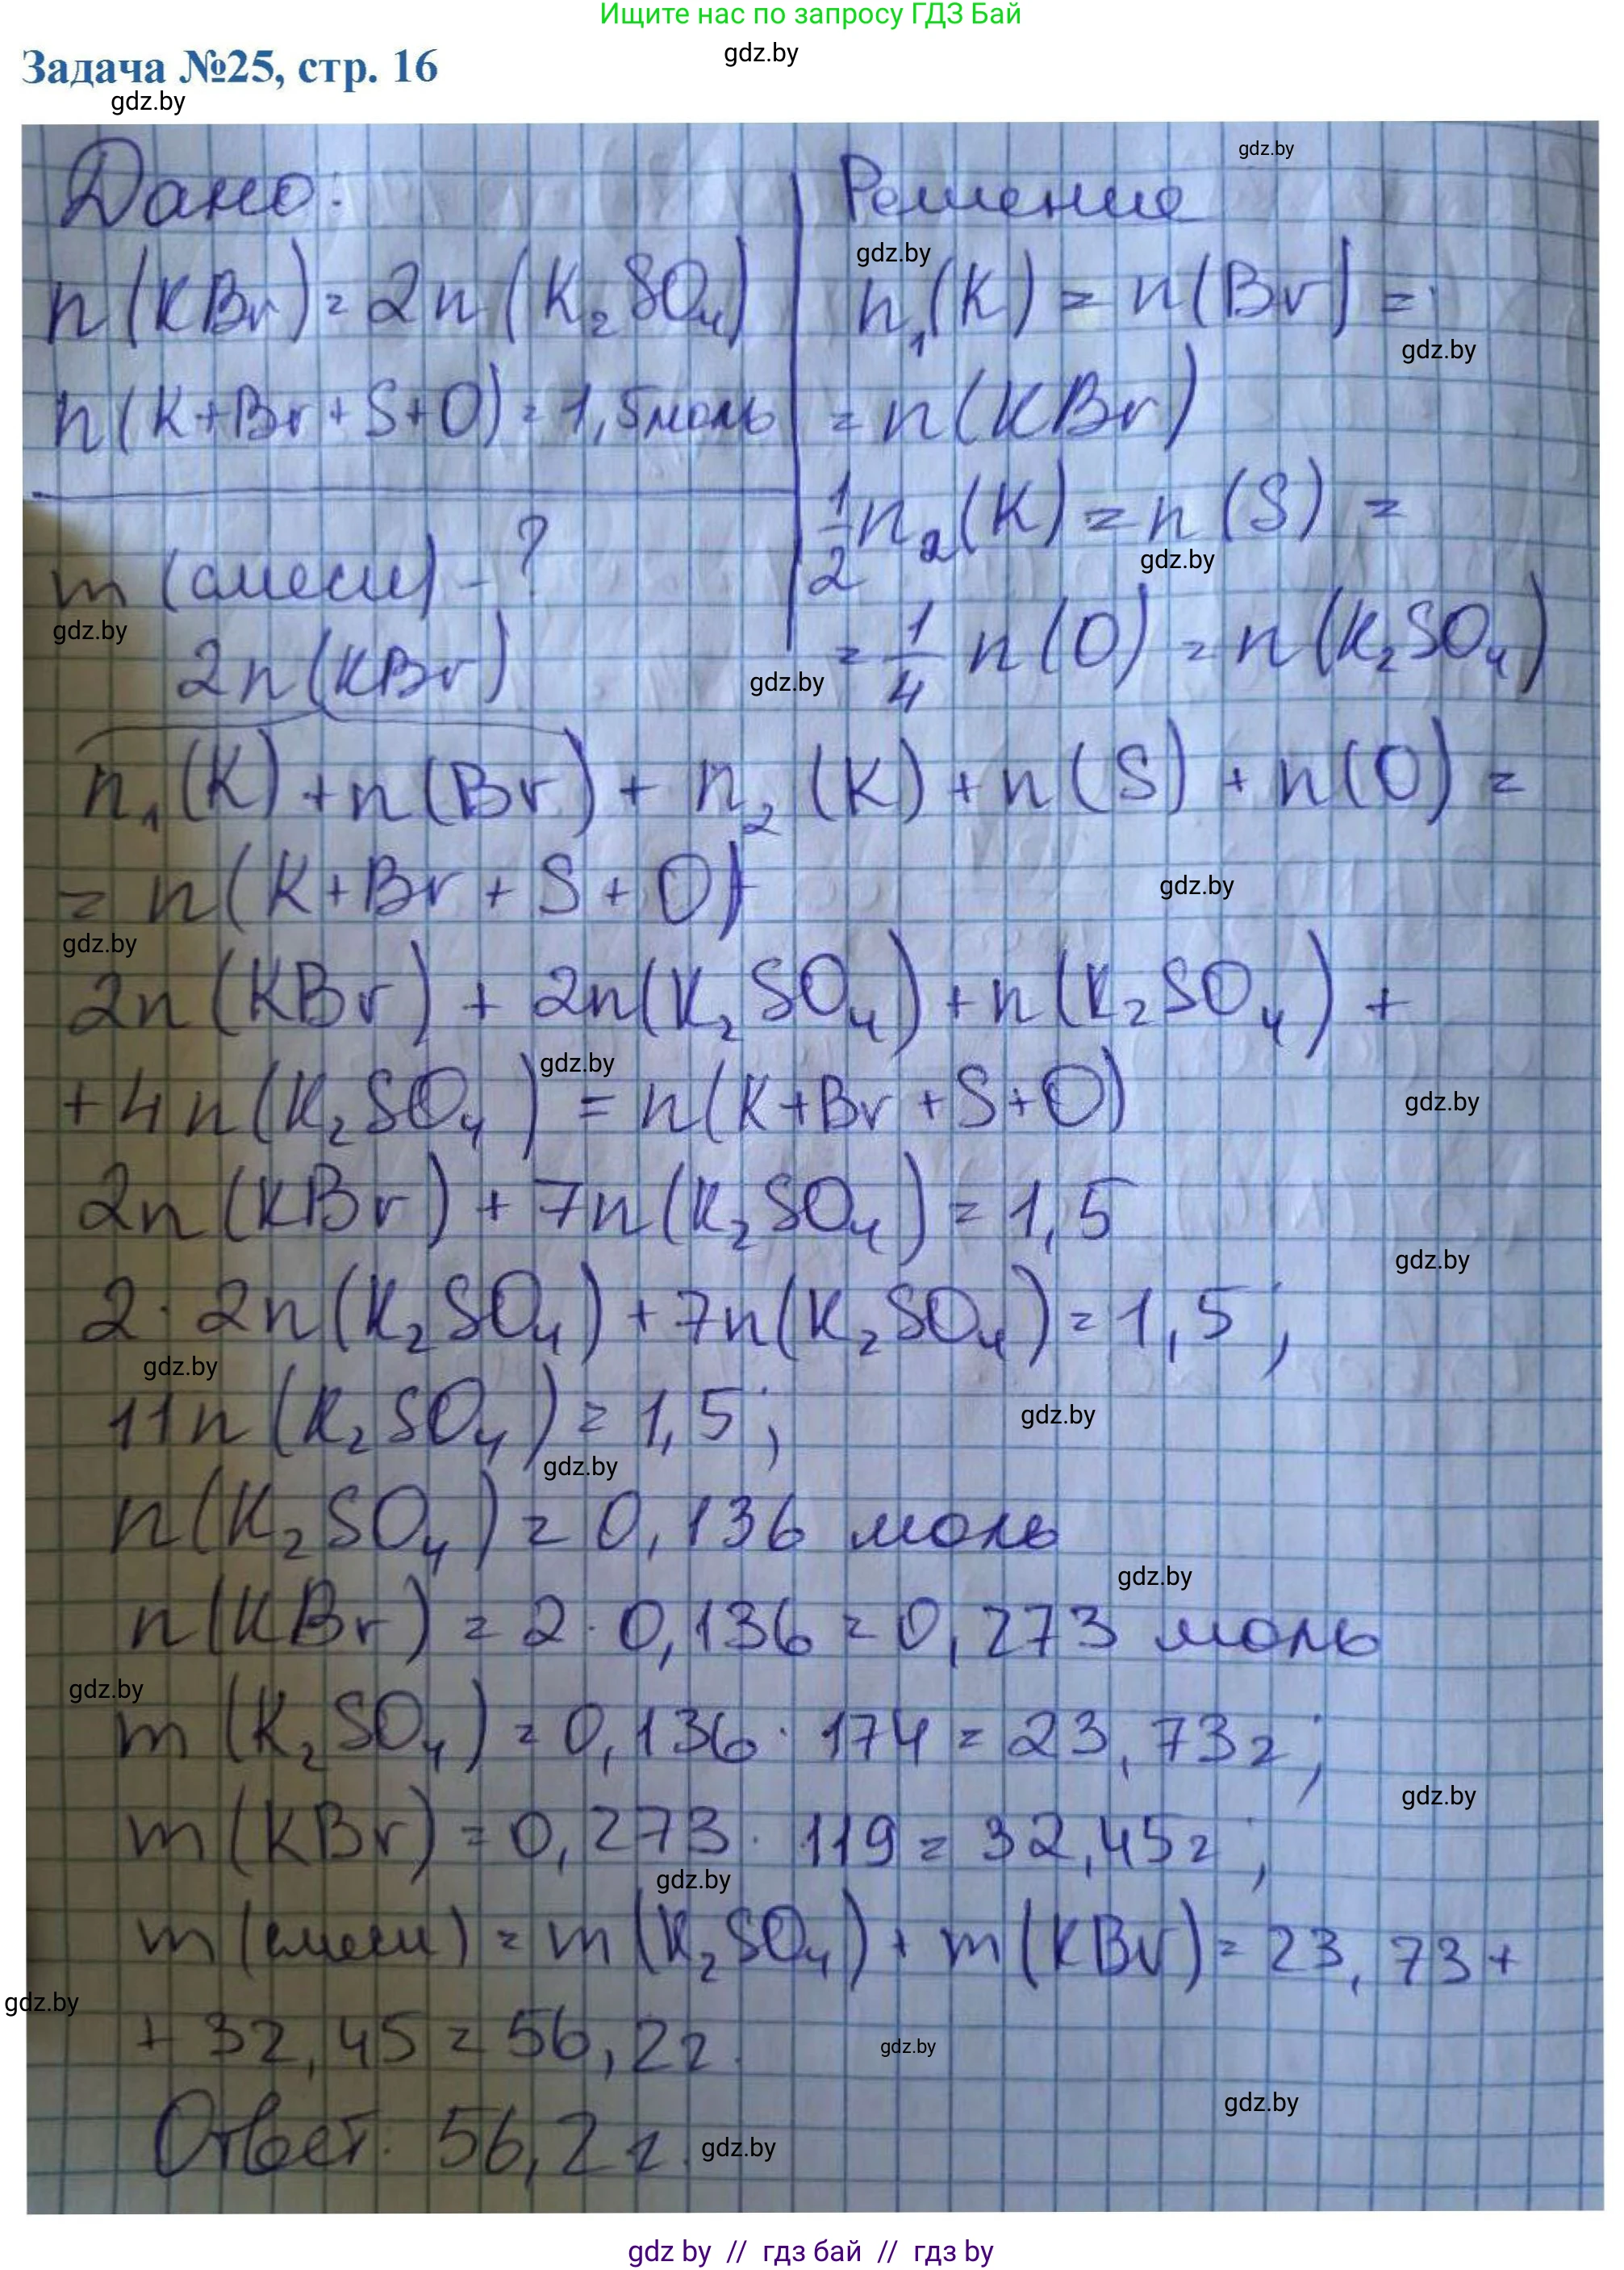 Ищите нас по запросу ГДЗ Бай
gdz.by
Задача №25, стр. 16
gdz.by
gdz.by
Дано:
n(KBr)=2n(K₂SO₄)
n(K+Br+S+O)=1,5моль
m(смеси)-?
gdz.by
Решение
gdz.by
n₁(K)=n(Br)=
gdz.by
=n(KBr)
1/2 n₂(K)=n(S)=
gdz.by
=1/4 n(O)=n(K₂SO₄)
gdz.by
2n(KBr)
n₁(K)+n(Br)+n₂(K)+n(S)+n(O)=
=n(K+Br+S+O)
gdz.by
gdz.by
2n(KBr)+2n(K₂SO₄)+n(K₂SO₄)+
gdz.by
+4n(K₂SO₄)=n(K+Br+S+O)
gdz.by
2n(KBr)+7n(K₂SO₄)=1,5
gdz.by
2·2n(K₂SO₄)+7n(K₂SO₄)=1,5;
gdz.by
11n(K₂SO₄)=1,5;
gdz.by
gdz.by
n(K₂SO₄)=0,136 моль
gdz.by
n(KBr)=2·0,136=0,273 моль
gdz.by
m(K₂SO₄)=0,136·174=23,73г;
gdz.by
m(KBr)=0,273·119=32,45г;
gdz.by
m(смеси)=m(K₂SO₄)+m(KBr)=23,73+
gdz.by
+32,45=56,2г.
gdz.by
gdz.by
Ответ: 56,2г.
gdz.by
gdz by // гдз бай // гдз by